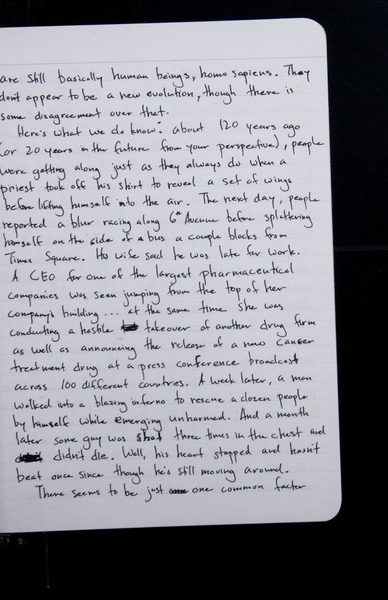 are still basically human beings, homo sapiens. They
don't appear to be a new evolution, though there is
some disagreement over that.
Here's what we do know: about 120 years ago
(or 20 years in the future from your perspective), people
were getting along just as they always do when a
priest took off his shirt to reveal a set of wings
before lifting himself into the air. The next day, people
reported a blur racing along 6th Avenue before splattering
himself on the side of a bus a couple blocks from
Times Square. His wife said he was late for work.
A CEO for one of the largest pharmaceutical
companies was seen jumping from the top of her
company's building... at the same time she was
conducting a hostile takeover of another drug firm
as well as announcing the release of a new cancer
treatment drug at a press conference broadcast
across 100 different countries. A week later, a man
walked into a blazing inferno to rescue a dozen people
by himself while emerging unharmed. And a month
later some guy was shot three times in the chest and
didn't die. Well, his heart stopped and hasn't
beat once since though he's still moving around.
There seems to be just one common factor